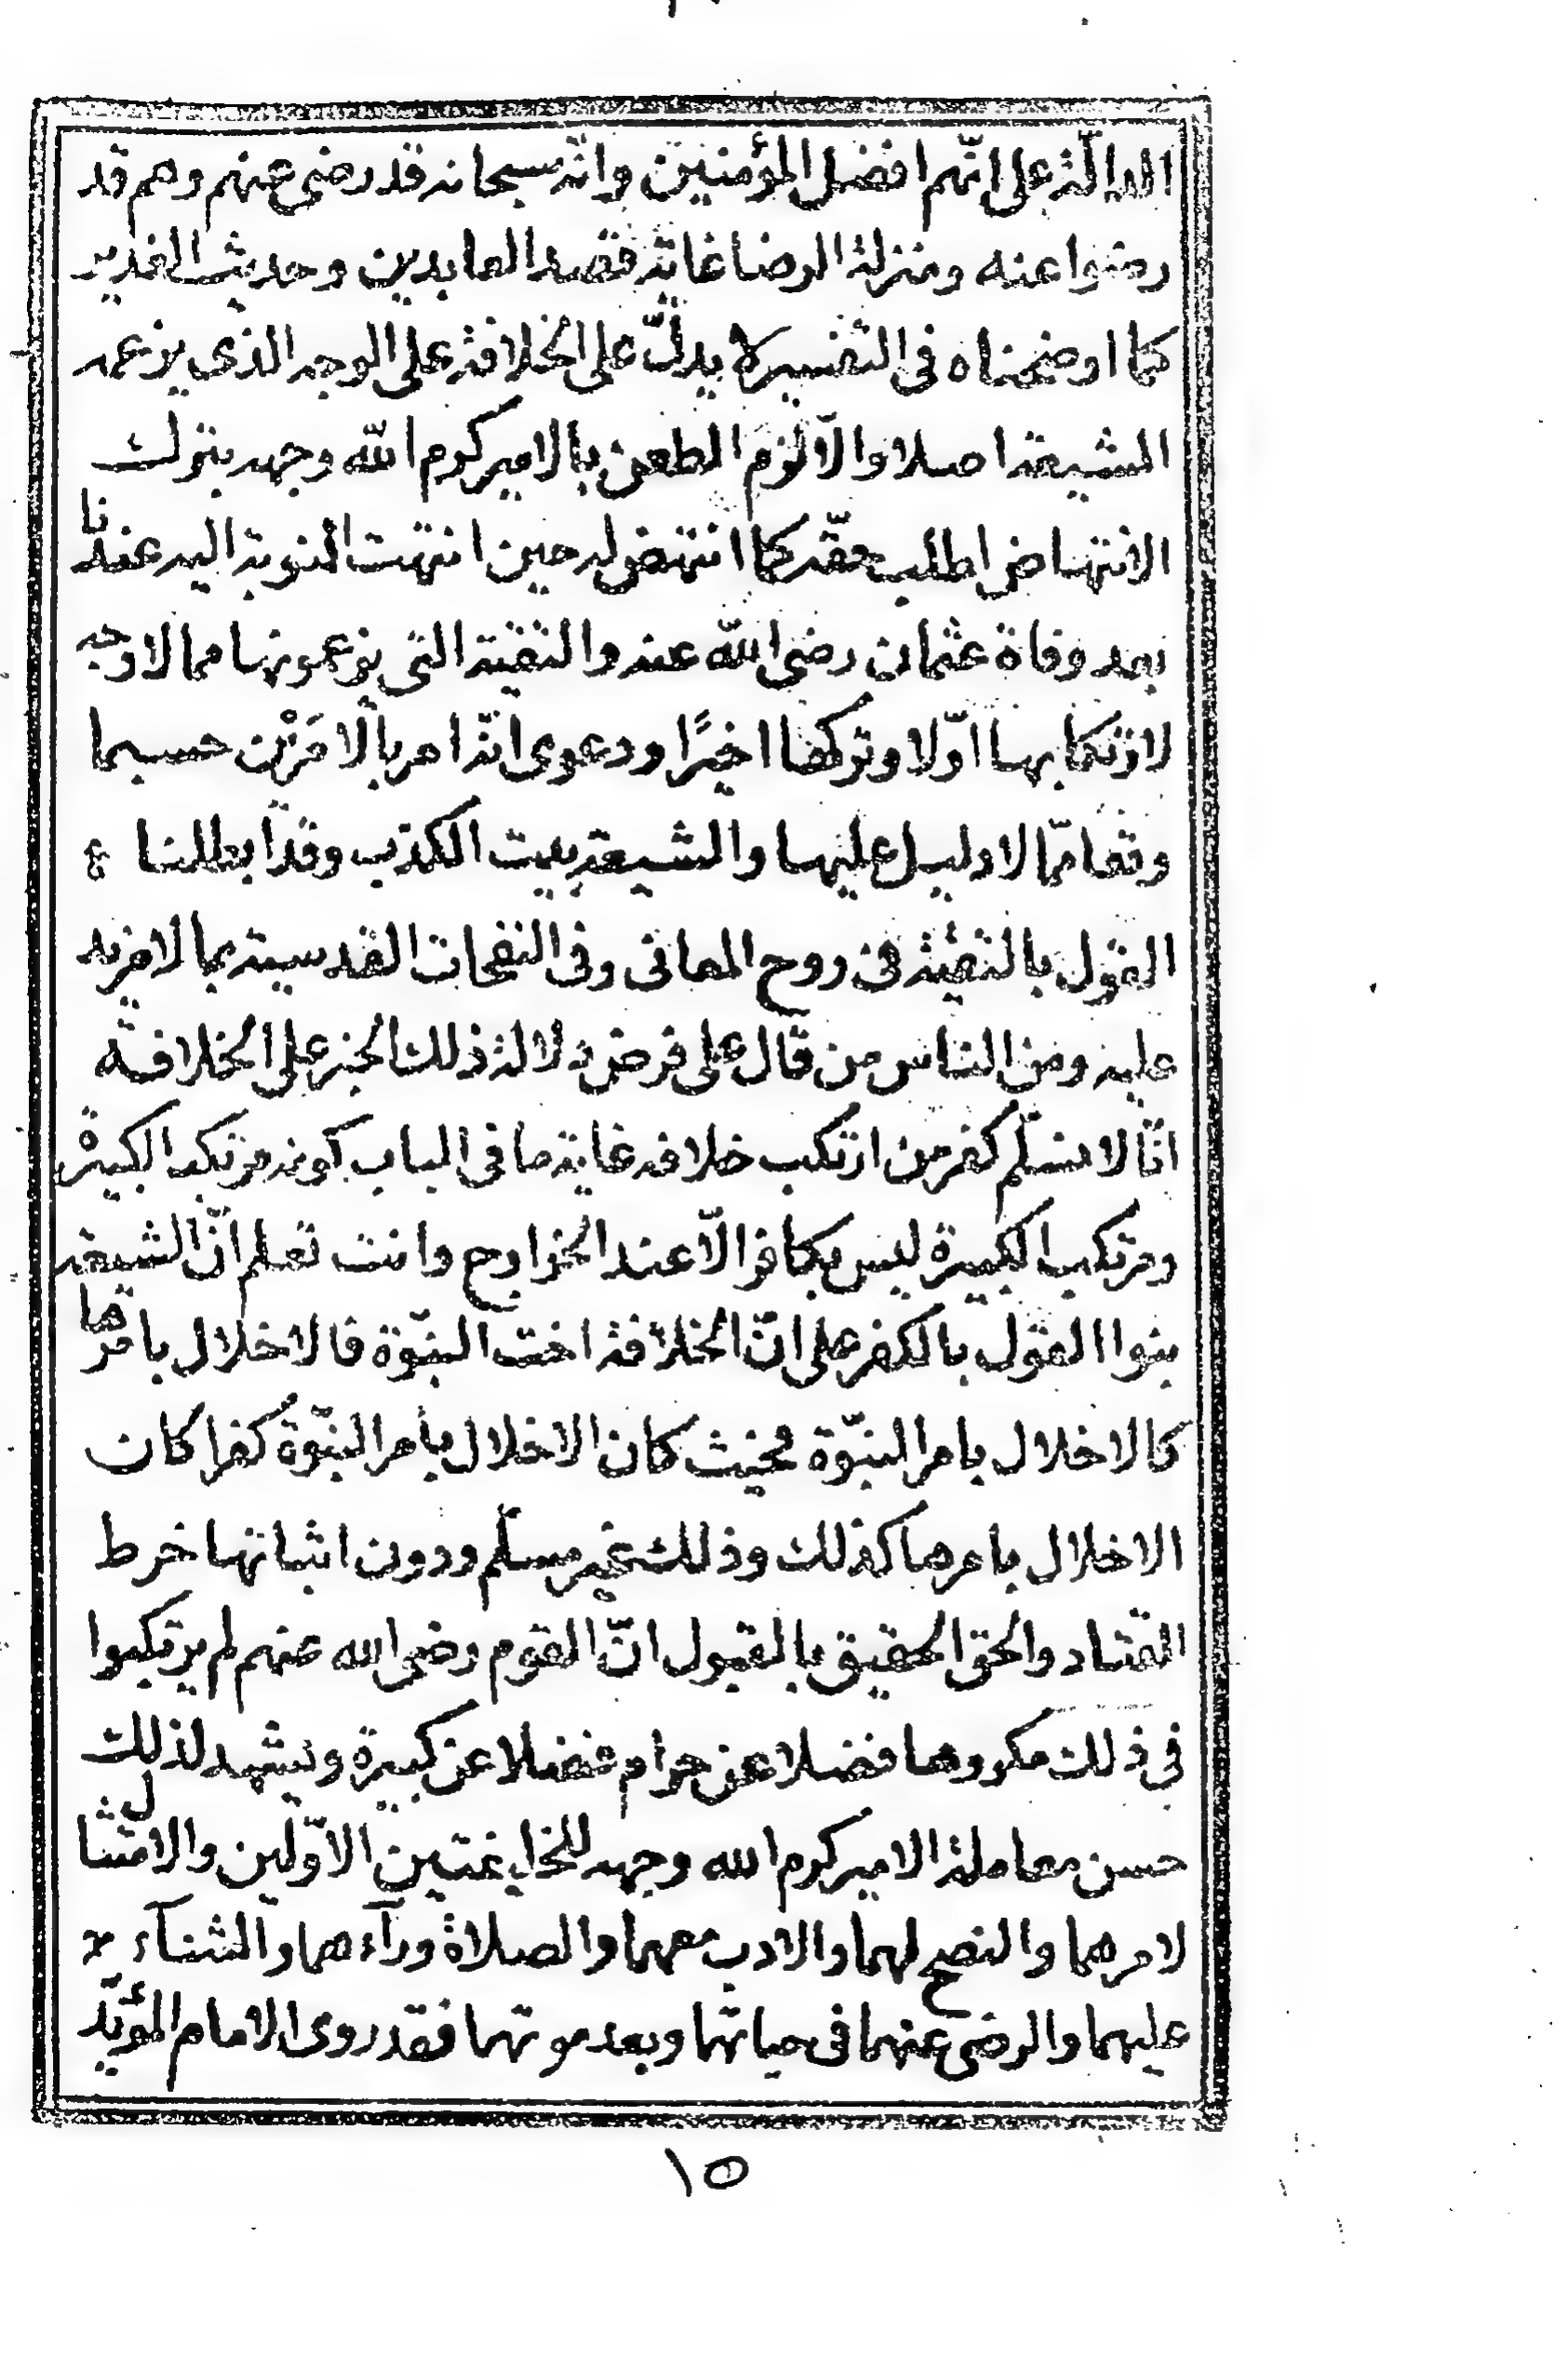 الدالّة على انّهم افضل المؤمنين وانّه سبحانه قد رضى عنهم وهم قد
رضوا عنه ومنزلة الرضا غاية قصد العابدين وحديث الغدير
كما اوضحناه فى التفسير لا يدلّ على الخلافة على الوجه الذى يزعمه
الشيعة اصلا والّا لزم الطعن بالامير كرم الله وجهه بترك
الانتهاض لطلب حقّه كما انتهض له حين انتهت النوبة اليه عندنا
بعد وفاة عثمان رضى الله عنه والتقية التى يزعمونها مما لا وجه
لارتكابها اوّلا وتركها اخيرًا ودعوى انّه امر بالامرَيْن حسبما
وقعا ممّا لا دليل عليها والشيعة بيت الكذب وقد ابطلنا
القول بالتقية فى روح المعانى وفى النفحات القدسية بما لا مزيد
عليه ومن الناس من قال على فرض دلالة ذلك الخبر على الخلافة
انّا لا نسلّم كفر من ارتكب خلافه غاية ما فى الباب كونه مرتكب الكبيرة
ومرتكب الكبيرة ليس بكافر الّا عند الخوارج وانت تعلم انّ الشيعة
بنوا القول بالكفر على انّ الخلافة اخت النبّوة فالاخلال بامرها
كالاخلال بامر النبّوة فحيث كان الاخلال بأمر النبّوة كفرا كان
الاخلال بامرها كذلك وذلك غير مسلّم ودون اثباتها خرط
القتاد والحق الحقيق بالقبول انّ القوم رضى الله عنهم لم يرتكبوا
فى ذلك مكروها فضلا عن حرام فضلا عن كبيرة ويشهد لذلك
حسن معاملة الامير كرم الله وجهه للخليفتين الاوّلين والامتثال
لامرهما والنصح لهما والادب معهما والصلاة ورآءهما والثنآء
عليهما والرضى عنهما فى حياتهما وبعد موتهما فقد روى الامام المؤيّد
١٥